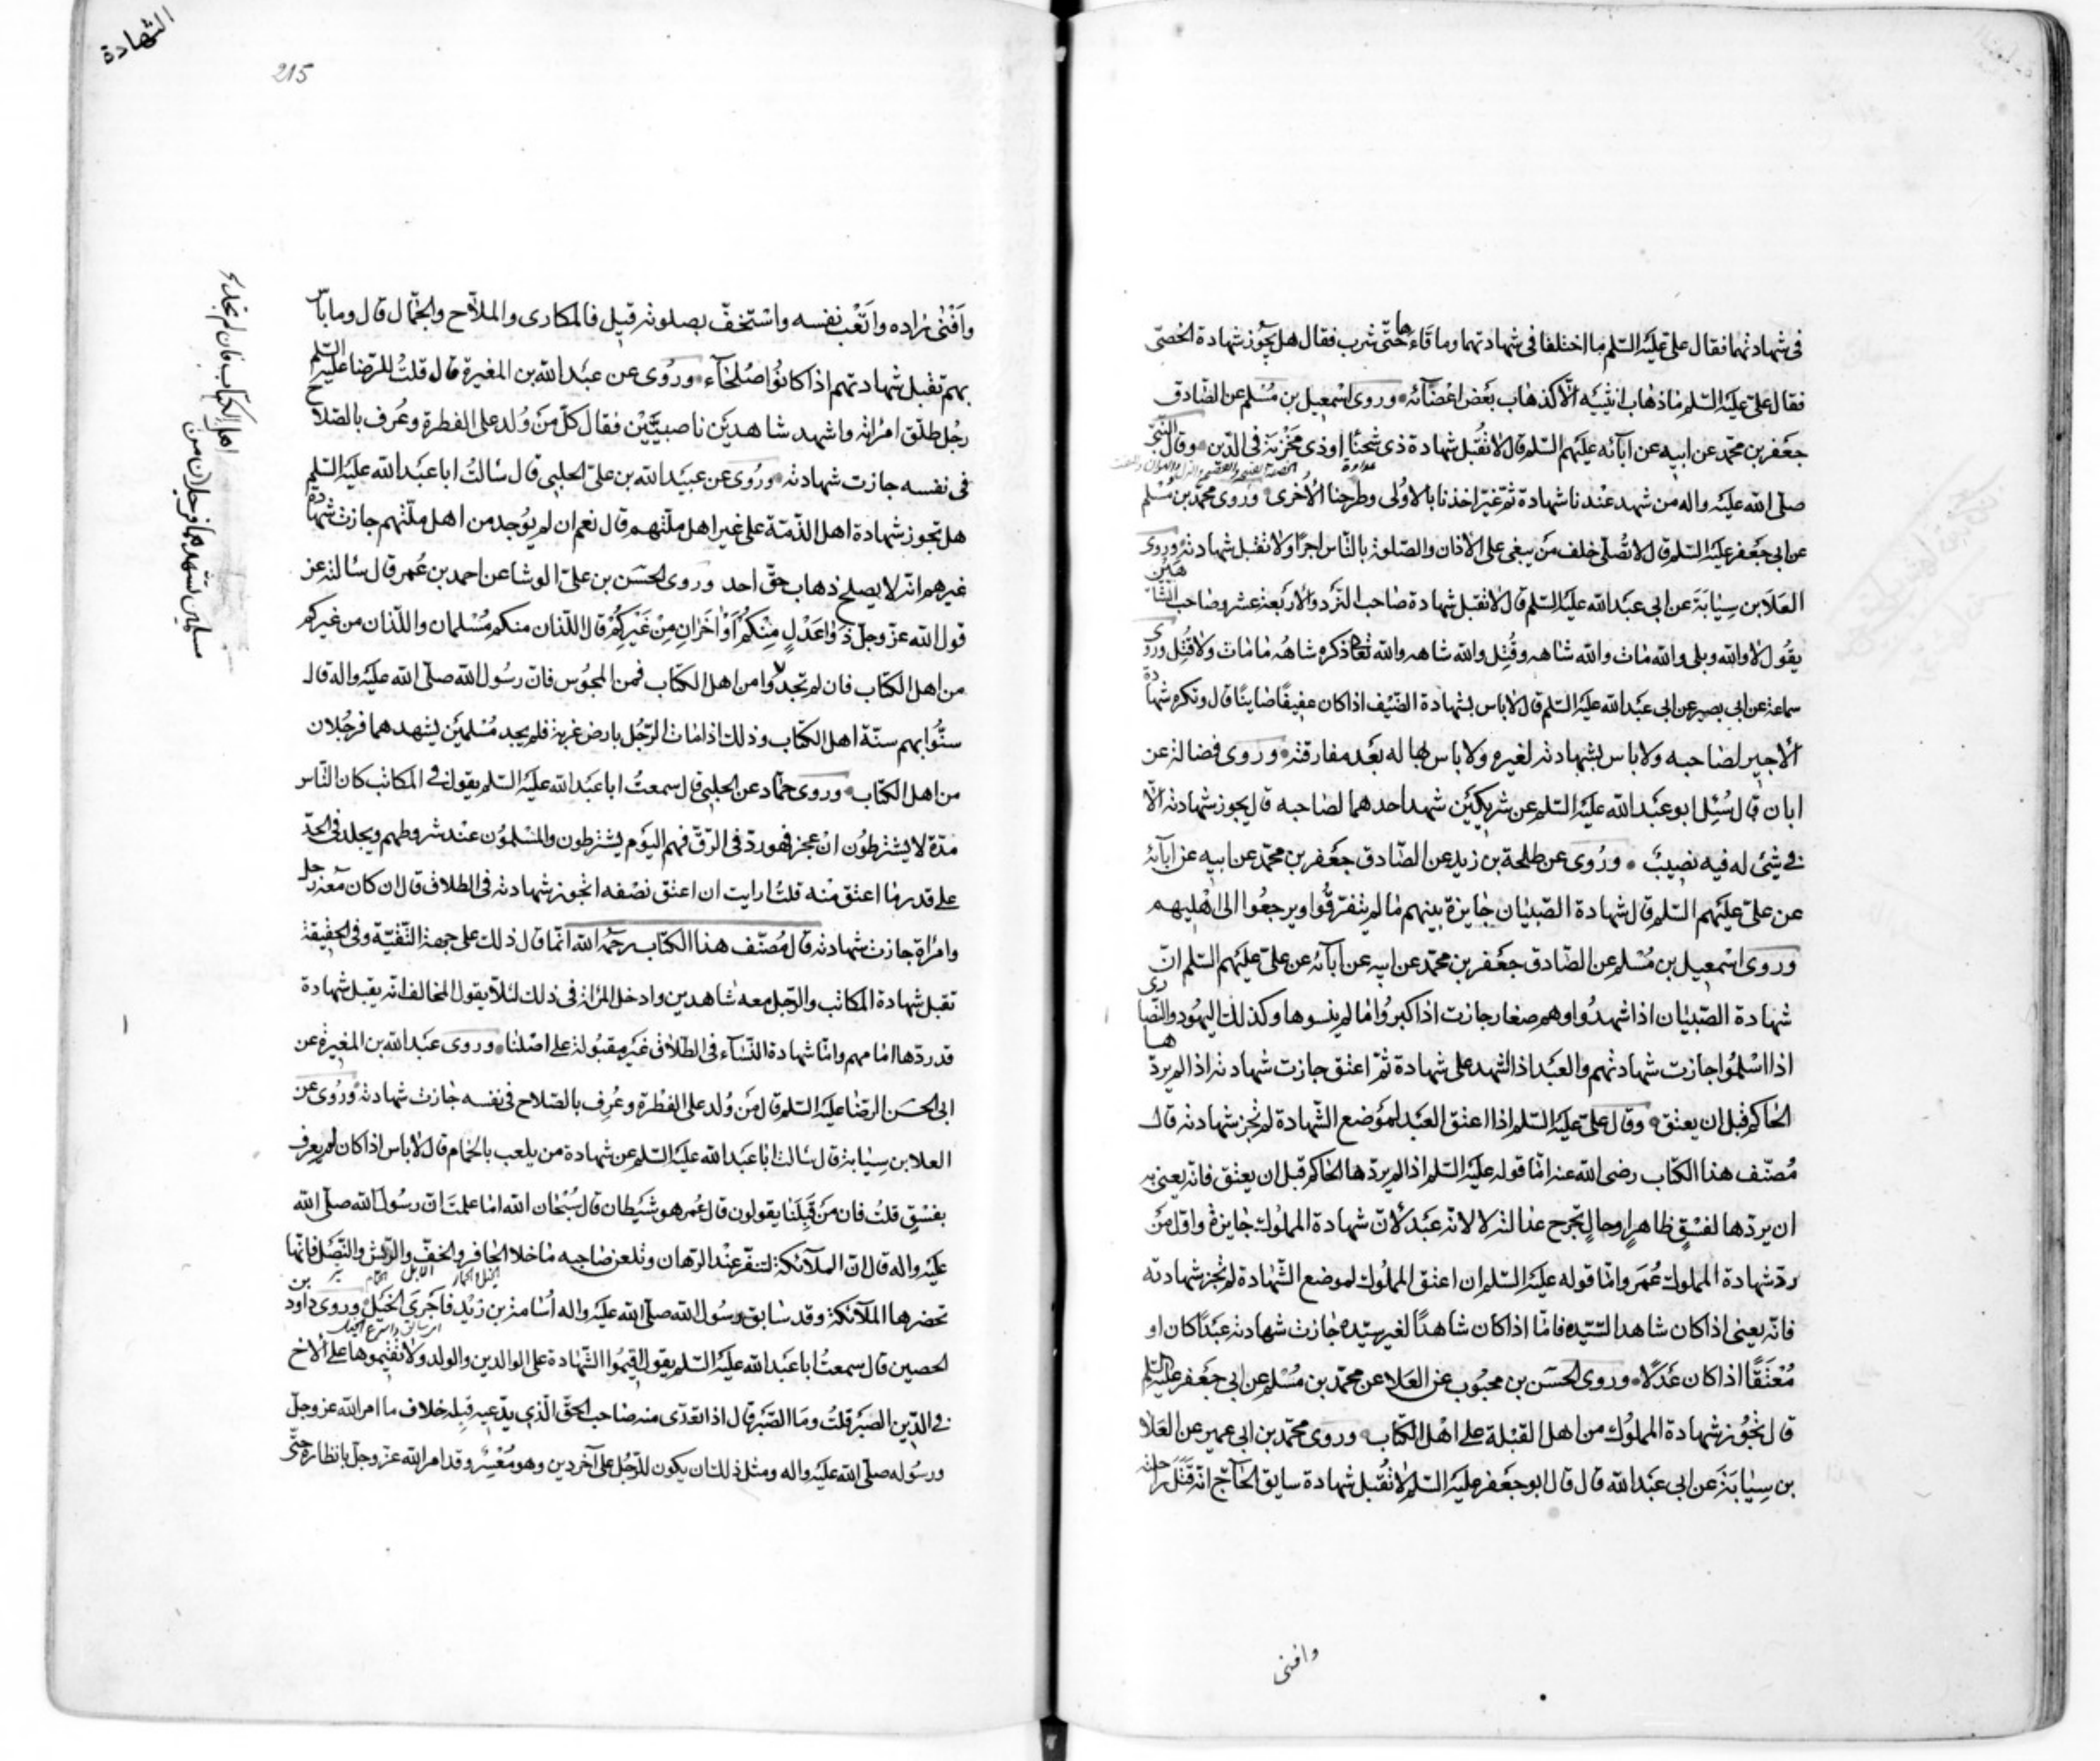 في شهادتهما فقال علي عليه السلم ما اختلفا في شهادتهما وما قاءها حتى شرب فقال هل يجوز شهادة الخصي
فقال علي عليه السلم ما ذهاب انثييه الا كذهاب بعض اعضائه وروى اسمعيل بن مسلم عن الصادق
جعفر بن محمد عن ابيه عن آبائه عليهم السلم قال لا تقبل شهادة ذى شحناء او ذى مخزية في الدين وقال النبي
صلى الله عليه واله من شهد عندنا شهادة ثم غير اخذنا بالاولى وطرحنا الأخرى وروى محمد بن مسلم
عن ابي جعفر عليه السلم قال لا تصلى خلف من يبغى على الاذان والصلوة بالناس اجرا ولا تقبل شهادته وروى
العلا بن سيابة عن ابي عبد الله عليه السلم قال لا تقبل شهادة صاحب النرد والاربعة عشر وصاحب الشاهين
يقول لا والله وبلى والله مات والله شاهه وقتل والله شاهه والله تعالى ذكره شاهه ما مات ولا قتل وروى
سماعة عن ابي بصير عن ابي عبد الله عليه السلم قال لا باس بشهادة الضيف اذا كان عفيفا صاينا قال وتكره شهادة
الاجير لصاحبه ولا باس بشهادته لغيره ولا باس بها له بعد مفارقته وروى فضالة عن
ابان قال سئل ابو عبد الله عليه السلم عن شريكين شهد احدهما لصاحبه قال يجوز شهادته الا
في شئ له فيه نصيب وروى عن طلحة بن زيد عن الصادق جعفر بن محمد عن ابيه عن آبائه
عن علي عليهم السلم قال شهادة الصبيان جايزة بينهم ما لم يتفرقوا ويرجعوا الى اهليهم
وروى اسمعيل بن مسلم عن الصادق جعفر بن محمد عن ابيه عن آبائه عن علي عليهم السلم ان
شهادة الصبيان اذا شهدوا وهم صغار جازت اذا كبروا ما لم ينسوها وكذلك اليهود والنصارى
اذا اسلموا جازت شهادتهم والعبد اذا اشهد على شهادة ثم اعتق جازت شهادته اذا لم يردها
الحاكم قبل ان يعتق وقال علي عليه السلم اذا اعتق العبد لموضع الشهادة لم تجز شهادته قال
مصنف هذا الكتاب رضى الله عنه اما قوله عليه السلم اذا لم يردها الحاكم قبل ان يعتق فانه يعنى به
ان يردها لفسق ظاهر او حال تجرح عدالته لا لانه عبد لان شهادة المملوك جايزة واول من
رد شهادة المملوك عمر واما قوله عليه السلم ان اعتق المملوك لموضع الشهادة لم تجز شهادته
فانه يعنى اذا كان شاهدا لسيده فاما اذا كان شاهدا لغير سيده جازت شهادته عبدا كان او
معتقا اذا كان عدلا وروى الحسن بن محبوب عن العلا عن محمد بن مسلم عن ابي جعفر عليه السلم
قال تجوز شهادة المملوك من اهل القبلة على اهل الكتاب وروى محمد بن ابي عمير عن العلا
بن سيابة عن ابي عبد الله قال قال ابو جعفر عليه السلم لا تقبل شهادة سابق الحاج انه قتل راحلته
وافنى
الشهادة
215
وافنى زاده واتعب نفسه واستخف بصلوته قيل فالمكارى والملاح والجمال قال وما باس
بهم تقبل شهادتهم اذا كانوا صلحآء وروى عن عبد الله بن المغيرة قال قلت للرضا عليه السلم
رجل طلق امراته واشهد شاهدين ناصبيين فقال كل من ولد على الفطرة وعرف بالصلاح
في نفسه جازت شهادته وروى عن عبيد الله بن علي الحلبي قال سالت ابا عبد الله عليه السلم
هل تجوز شهادة اهل الذمة على غير اهل ملتهم قال نعم ان لم يوجد من اهل ملتهم جازت شهادة
غيرهم انه لا يصلح ذهاب حق احد وروى الحسن بن علي الوشا عن احمد بن عمر قال سالته عن
قول الله عز وجل ذوا عدل منكم او آخران من غيركم قال اللذان منكم مسلمان واللذان من غيركم
من اهل الكتاب فان لم تجدوا من اهل الكتاب فمن المجوس فان رسول الله صلى الله عليه واله قال
سنوا بهم سنة اهل الكتاب وذلك اذا مات الرجل بارض غربة فلم يجد مسلمين يشهدهما فرجلان
من اهل الكتاب وروى حماد عن الحلبي قال سمعت ابا عبد الله عليه السلم يقول في المكاتب كان الناس
مدة لا يشترطون ان عجز فهو رد في الرق فهم اليوم يشترطون والمسلمون عند شروطهم ويجلد في الحد
على قدر ما اعتق منه قلت ارايت ان اعتق نصفه اتجوز شهادته في الطلاق قال ان كان معه رجل
وامراة جازت شهادته قال مصنف هذا الكتاب رحمه الله انما قال ذلك على جهة التقية وفى الحقيقة
تقبل شهادة المكاتب والرجل معه شاهدين وادخل المراة في ذلك لئلا يقول المخالف انه يقبل شهادة
قد ردها امامهم واما شهادة النسآء في الطلاق غير مقبولة على اصلنا وروى عبد الله بن المغيرة عن
ابي الحسن الرضا عليه السلم قال من ولد على الفطرة وعرف بالصلاح في نفسه جازت شهادته وروى عن
العلا بن سيابة قال سالت ابا عبد الله عليه السلم عن شهادة من يلعب بالحمام قال لا باس اذا كان لم يعرف
بفسق قلت فان من قبلنا يقولون قال عمر هو شيطان قال سبحان الله اما علمت ان رسول الله صلى الله
عليه واله قال ان الملآئكة لتنفر عند الرهان وتلعن صاحبه ما خلا الحافر والخف والريش والنصل فانها
تحضرها الملآئكة وقد سابق رسول الله صلى الله عليه واله أسامة بن زيد فاجرى الخيل وروى داود بن
الحصين قال سمعت ابا عبد الله عليه السلم يقول اقيموا الشهادة على الوالدين والولد ولا تقيموها على الاخ
في الدين الصبر قلت وما الصبر قال اذا تعدى منه صاحب الحق الذى يدعيه قبله خلاف ما امر الله عز وجل
ورسوله صلى الله عليه واله ومثل ذلك ان يكون للرجل على آخر دين وهو معسر وقد امر الله عز وجل بانظاره حتى
اهل الكتاب فان لم تجد
مسلمين تشهدهما فرجلان من